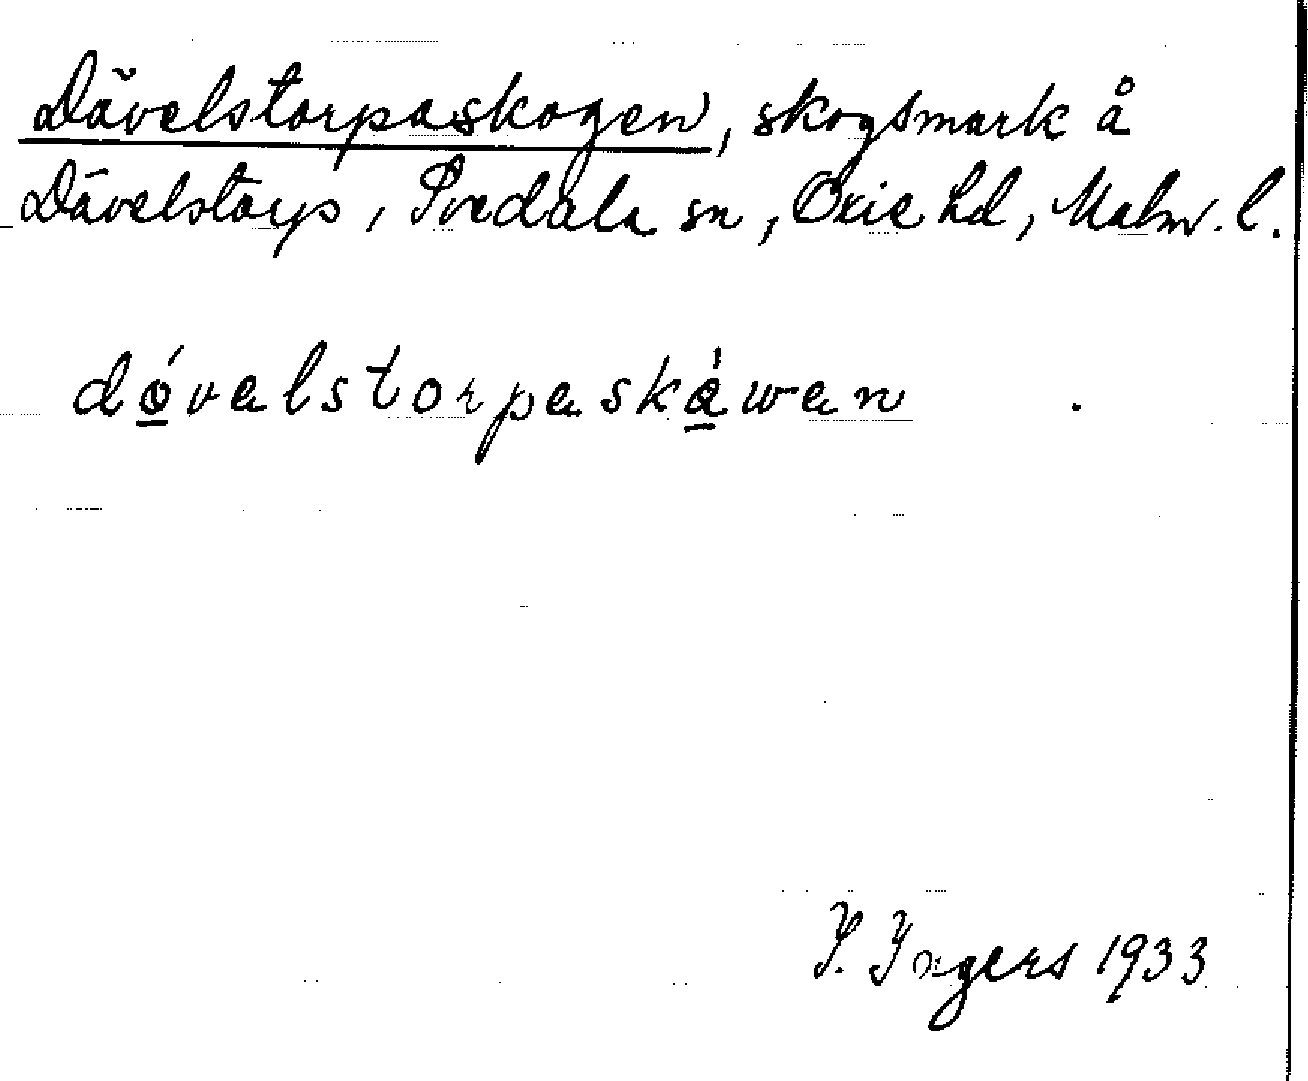 Dävelstorpaskogen, skogsmark å
Dävelstorp, Svedala sn, Oxie hd, Malm. l.
dǿvelstorpaskǻwen .
I. Ingers 1933